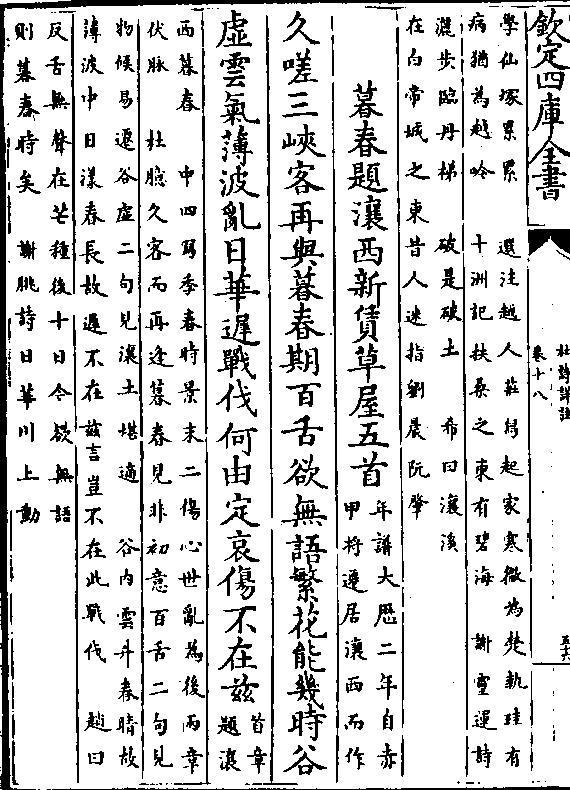 欽定四庫全書
杜詩詳註
卷十八
五十六
學仙塚累累
選注越人莊舄起家寒微為楚執珪有
病猶為越吟
十洲記扶桑之東有碧海
謝靈運詩
躧步臨丹梯
破是破土
希曰瀼溪
在白帝城之東昔人迷指劉晨阮肇
暮春題瀼西新賃草屋五首
年譜大厯二年自赤
甲将遷居瀼西而作
久嗟三峽客再與暮春期百舌欲無語繁花能幾時谷
虛雲氣薄波亂日華遲戰伐何由定哀傷不在兹
首章
題瀼
西暮春
中四寫季春時景末二傷心世亂為後兩章
伏脉
杜臆久客而再逢暮春見非初意百舌二句見
物候易遷谷虛二句見瀼土堪適
谷内雲升春晴故
薄波中日漾春長故遲不在兹言豈不在此戰伐
趙曰
反舌無聲在芒種後十日今欲無語
則暮春時矣
謝朓詩日華川上動